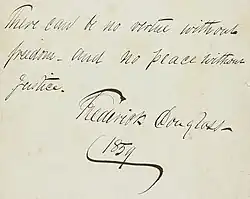 There can be no virtue without
freedom - and no peace without
Justice.
Frederick Douglass -
1859